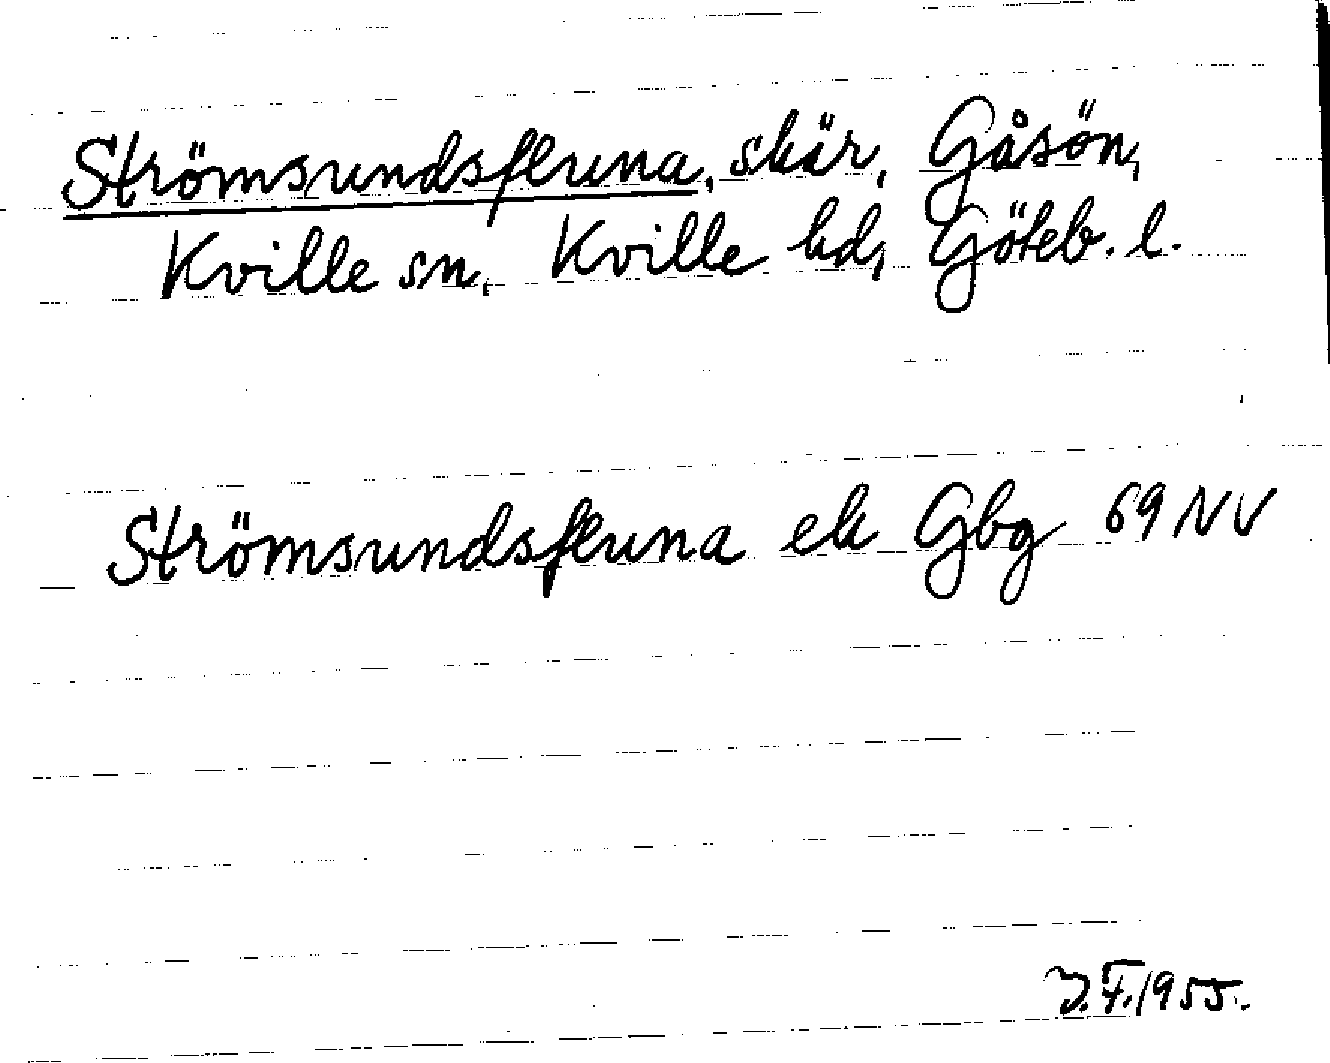 Strömsundsfluna, skär, Gåsön,
Kville sn, Kville hd, Göteb. l.
Strömsundsfluna ek Gbg 69 NV
J.F. 1955.